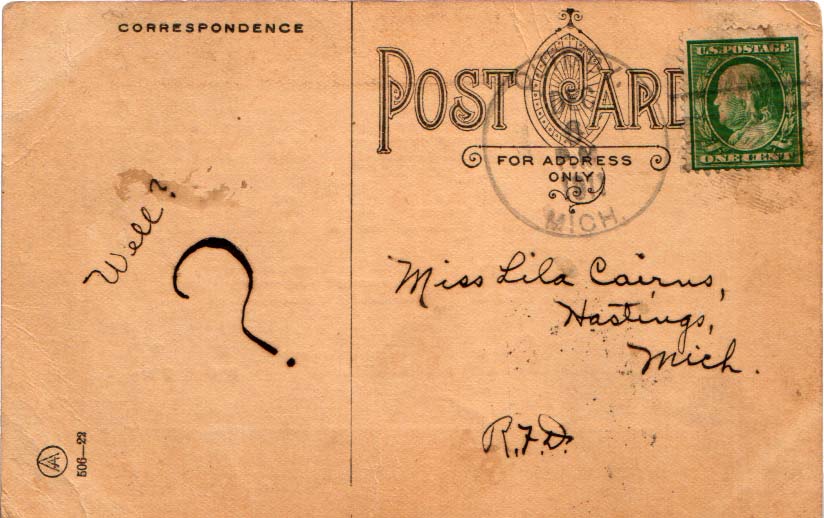 CORRESPONDENCE
POST CARD
FOR ADDRESS
ONLY
U.S. POSTAGE
ONE CENT
MICH.
Well?
?
Miss Lila Cairns,
Hastings,
Mich.
R.F.D.
506—22